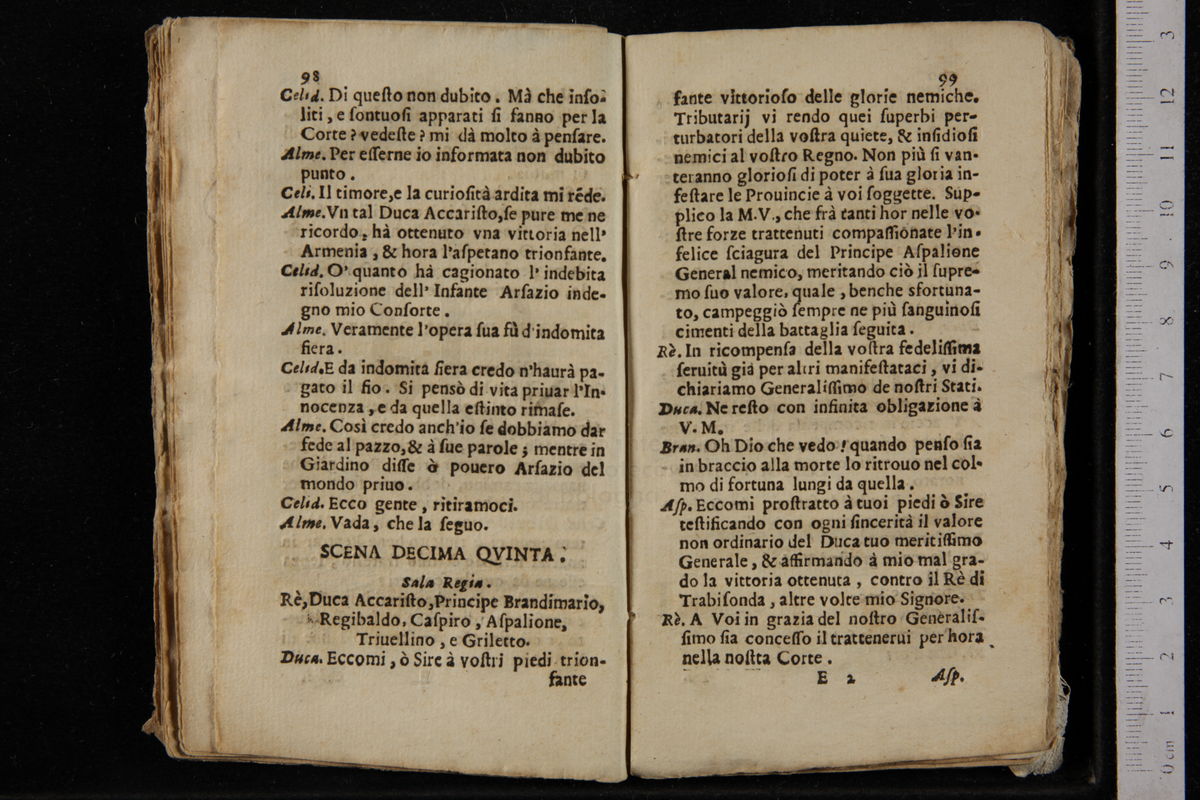 98
Celid. Di queſto non dubito. Mà che inſo-
liti, e ſontuoſi apparati ſi fanno per la
Corte? vedeſte? mi dà molto à penſare.
Alme. Per eſſerne io informata non dubito
punto.
Celi. Il timore, e la curioſità ardita mi rēde.
Alme. Vn tal Duca Accariſto, ſe pure me ne
ricordo, hà ottenuto vna vittoria nell'
Armenia, & hora l'aſpetano trionfante.
Celid. O' quanto hà cagionato l' indebita
riſoluzione dell' Infante Arſazio inde-
gno mio Conſorte.
Alme. Veramente l'opera ſua fù d'indomita
fiera.
Celid. E da indomita fiera credo n'haurà pa-
gato il fio. Si pensò di vita priuar l'In-
nocenza, e da quella eſtinto rimaſe.
Alme. Così credo anch'io ſe dobbiamo dar
fede al pazzo, & à ſue parole; mentre in
Giardino diſſe ò pouero Arſazio del
mondo priuo.
Celid. Ecco gente, ritiramoci.
Alme. Vada, che la ſeguo.
SCENA DECIMA QVINTA.
Sala Regia.
Rè, Duca Accariſto, Principe Brandimario,
Regibaldo, Caſpiro, Aſpalione,
Triuellino, e Griletto.
Duca. Eccomi, ò Sire à voſtri piedi trion-
fante
99
fante vittorioſo delle glorie nemiche.
Tributarij vi rendo quei ſuperbi per-
turbatori della voſtra quiete, & inſidioſi
nemici al voſtro Regno. Non più ſi van-
teranno glorioſi di poter à ſua gloria in-
feſtare le Prouincie à voi ſoggette. Sup-
plico la M.V., che frà tanti hor nelle vo-
ſtre forze trattenuti compaſſionate l'in-
felice ſciagura del Principe Aſpalione
General nemico, meritando ciò il ſupre-
mo ſuo valore, quale, benche sfortuna-
to, campeggiò ſempre ne più ſanguinoſi
cimenti della battaglia ſeguita.
Rè. In ricompenſa della voſtra fedeliſſima
ſeruitù già per altri manifeſtataci, vi di-
chiariamo Generaliſſimo de noſtri Stati.
Duca. Ne reſto con infinita obligazione à
V. M.
Bran. Oh Dio che vedo! quando penſo ſia
in braccio alla morte lo ritrouo nel col-
mo di fortuna lungi da quella.
Aſp. Eccomi proſtratto à tuoi piedi ò Sire
teſtificando con ogni ſincerità il valore
non ordinario del Duca tuo meritiſſimo
Generale, & affirmando à mio mal gra-
do la vittoria ottenuta, contro il Rè di
Trabiſonda, altre volte mio Signore.
Rè. A Voi in grazia del noſtro Generaliſ-
ſimo ſia conceſſo il trattenerui per hora
nella noſtta Corte.
E 2 Aſp.
0 cm 1 2 3 4 5 6 7 8 9 10 11 12 3